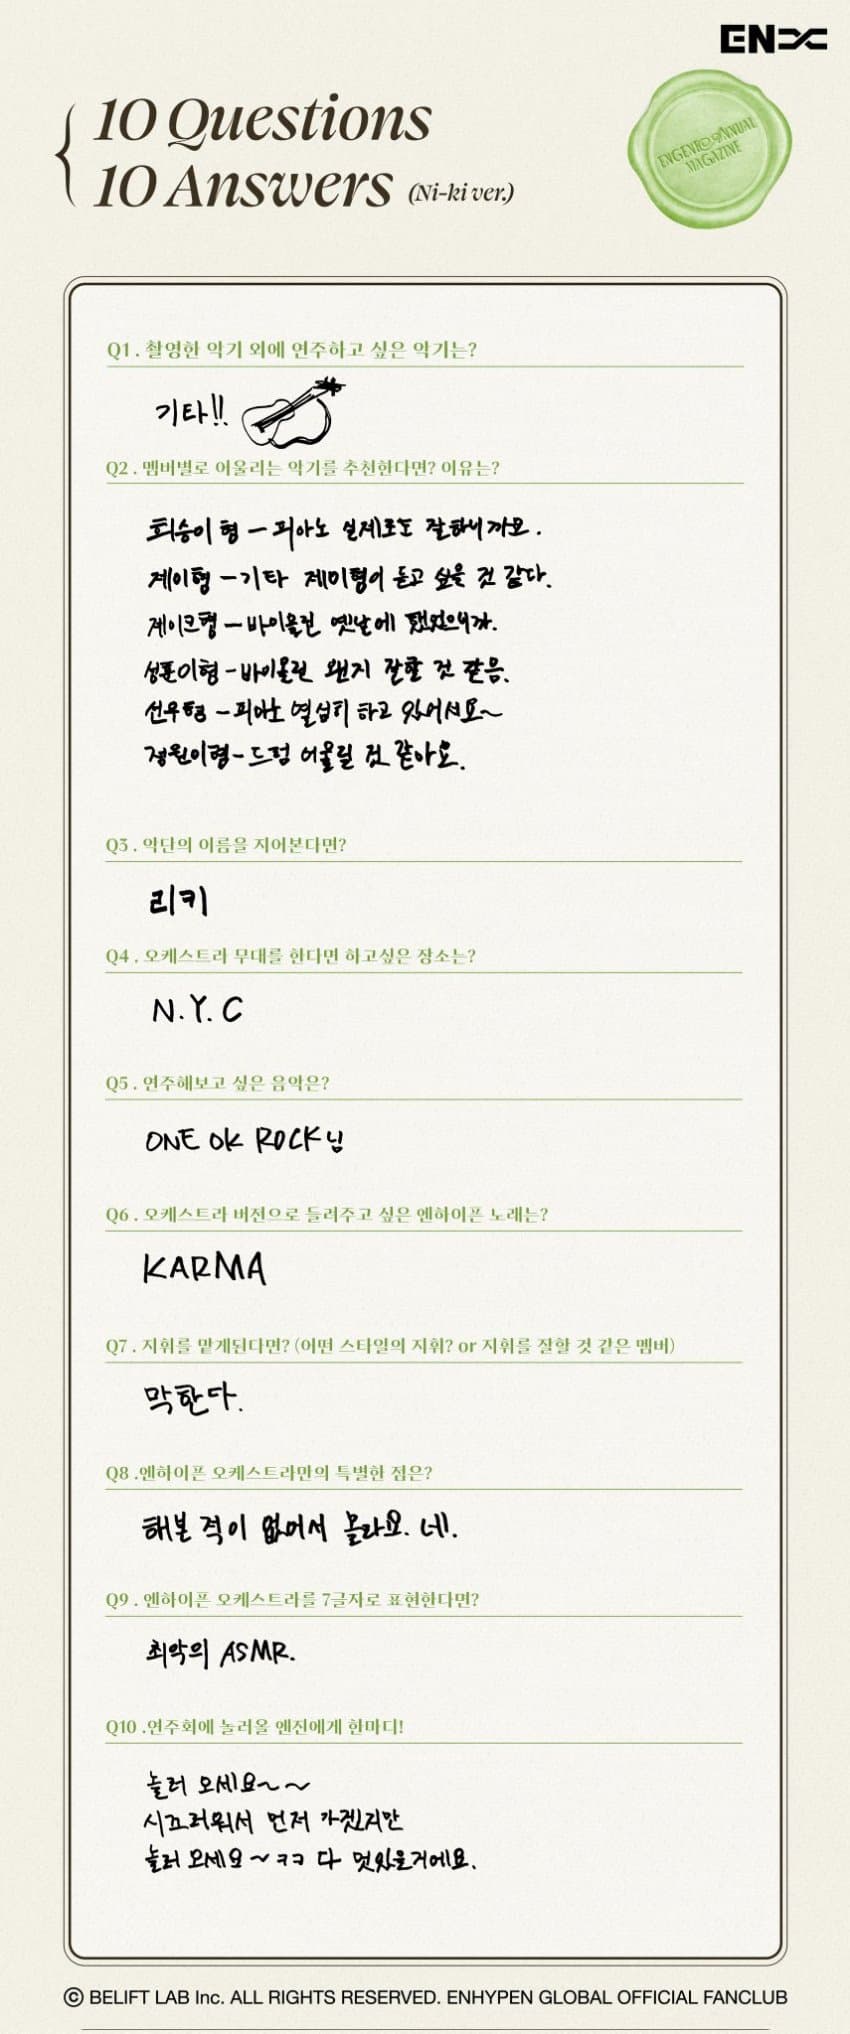 EN
10 Questions
10 Answers (Ni-ki ver.)
ENGENE ANNUAL
MAGAZINE
Q1 . 촬영한 악기 외에 연주하고 싶은 악기는?
기타!!
Q2 . 멤버별로 어울리는 악기를 추천한다면? 이유는?
희승이 형 – 피아노 실제로도 잘하니까요.
제이형 – 기타 제이형이 듣고 싶을 것 같다.
제이크형 – 바이올린 옛날에 했었으니까.
성훈이형 - 바이올린 왠지 잘할 것 같음.
선우형 – 피아노 열심히 하고 있어서요~
정원이형 - 드럼 어울릴 것 같아요.
Q3 . 악단의 이름을 지어본다면?
리키
Q4 . 오케스트라 무대를 한다면 하고싶은 장소는?
N.Y.C
Q5 . 연주해보고 싶은 음악은?
ONE OK ROCK님
Q6 . 오케스트라 버전으로 들려주고 싶은 엔하이픈 노래는?
KARMA
Q7 . 지휘를 맡게된다면? (어떤 스타일의 지휘? or 지휘를 잘할 것 같은 멤버)
막한다.
Q8 .엔하이픈 오케스트라만의 특별한 점은?
해본 적이 없어서 몰라요. 네.
Q9 . 엔하이픈 오케스트라를 7글자로 표현한다면?
최악의 ASMR.
Q10 .연주회에 놀러올 엔진에게 한마디!
놀러 오세요~~
시끄러워서 먼저 가겠지만
놀러 오세요~ㅋㅋ 다 멋있을거에요.
© BELIFT LAB Inc. ALL RIGHTS RESERVED. ENHYPEN GLOBAL OFFICIAL FANCLUB